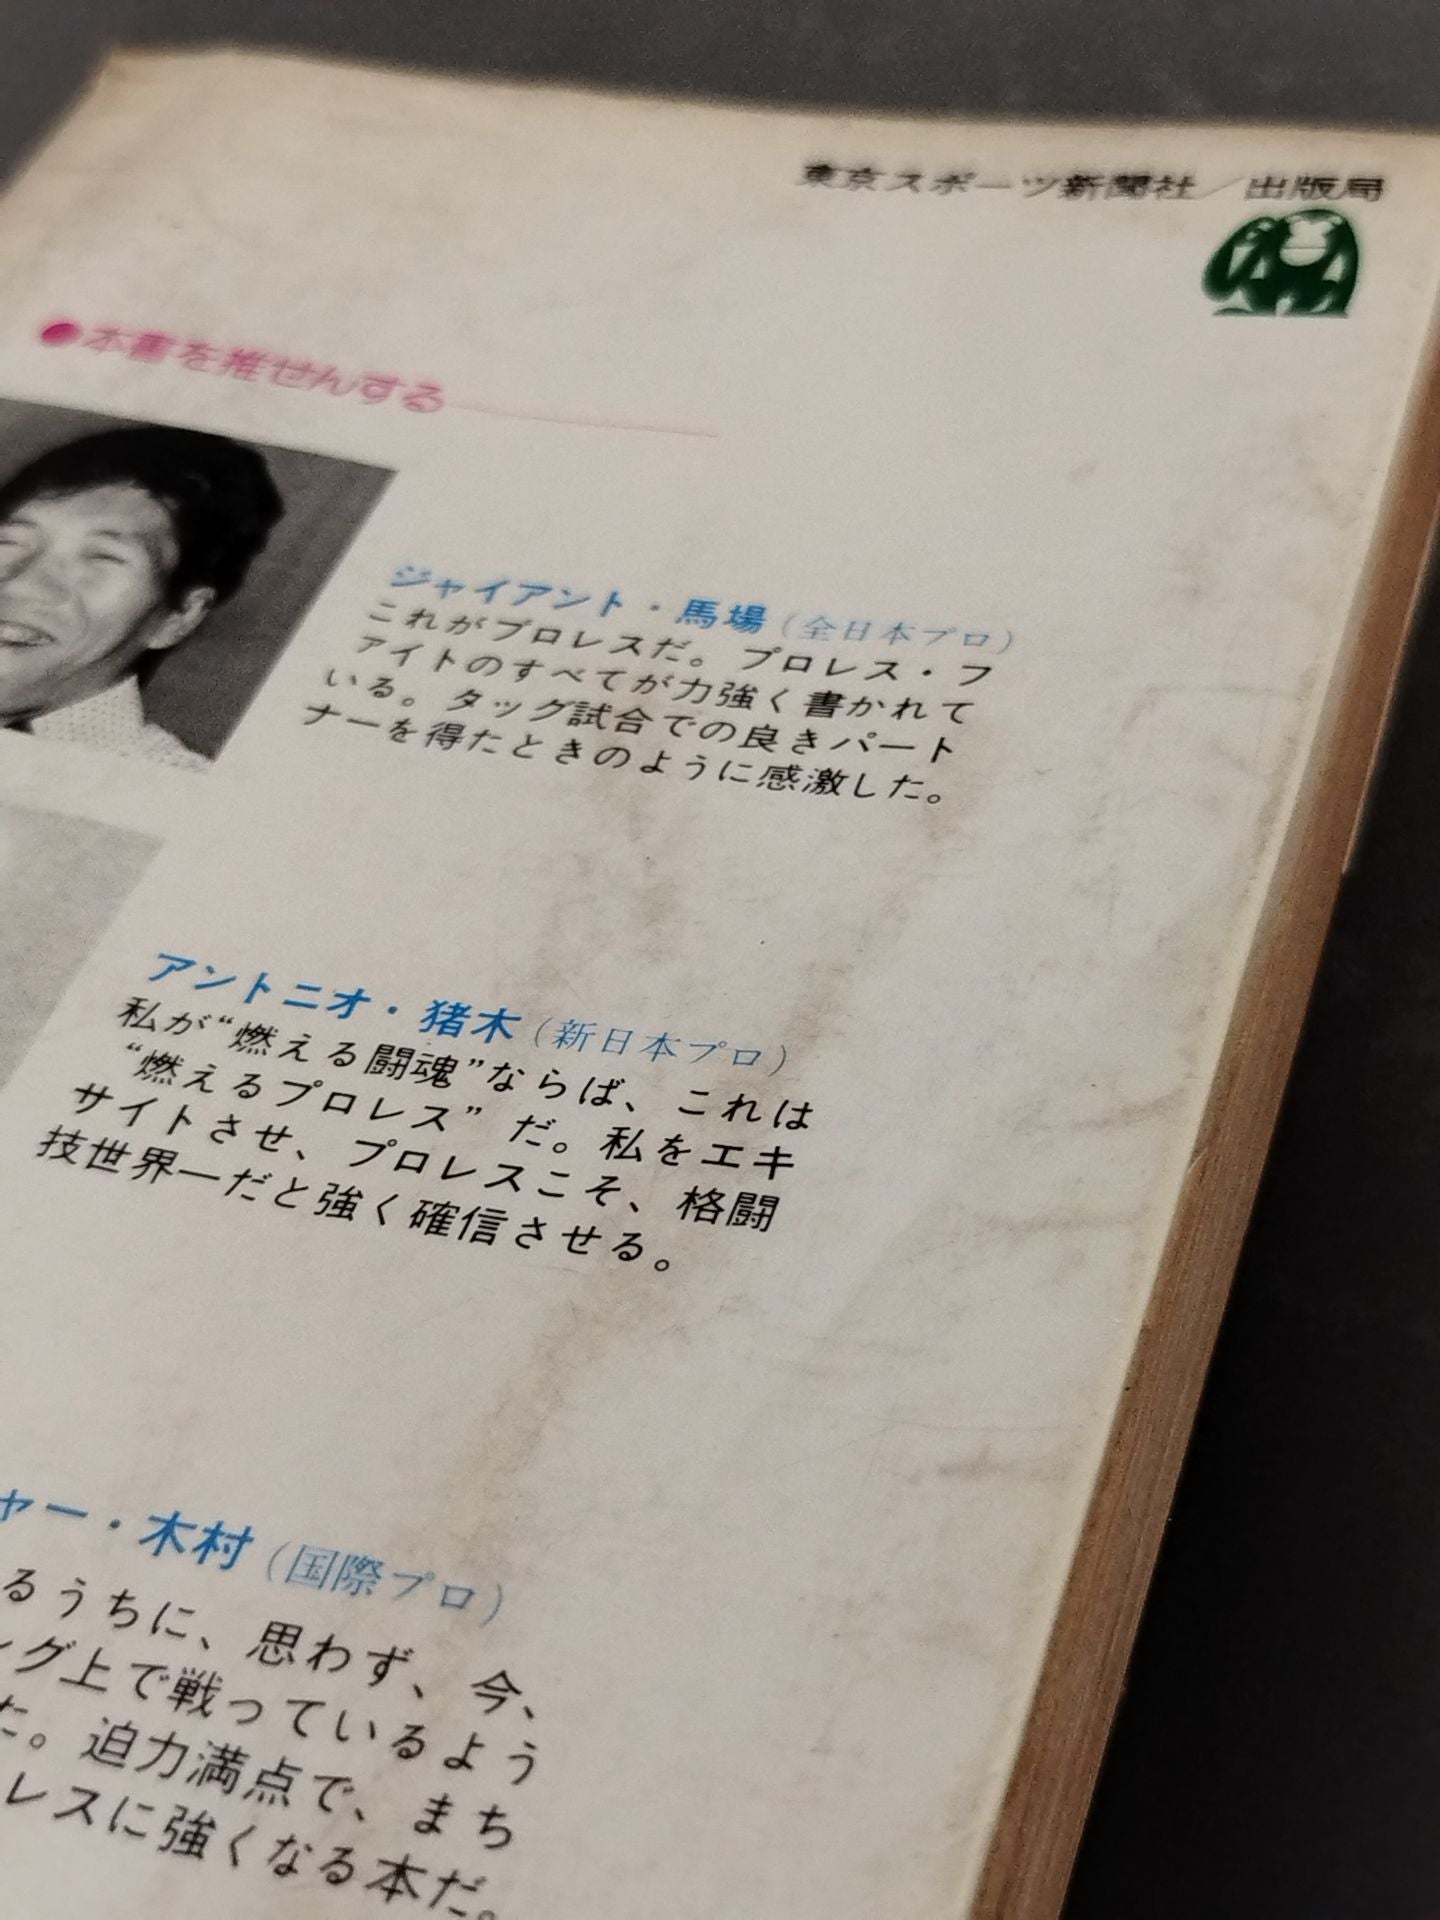 東京スポーツ新聞社／出版局
●本書を推せんする
ジャイアント・馬場(全日本プロ)
これがプロレスだ。プロレス・フ
ァイトのすべてが力強く書かれて
いる。タッグ試合での良きパート
ナーを得たときのように感激した。
アントニオ・猪木(新日本プロ)
私が“燃える闘魂”ならば、これは
“燃えるプロレス”だ。私をエキ
サイトさせ、プロレスこそ、格闘
技世界一だと強く確信させる。
ャー・木村(国際プロ)
るうちに、思わず、今、
ング上で戦っているよう
た。迫力満点で、まち
レスに強くなる本だ。